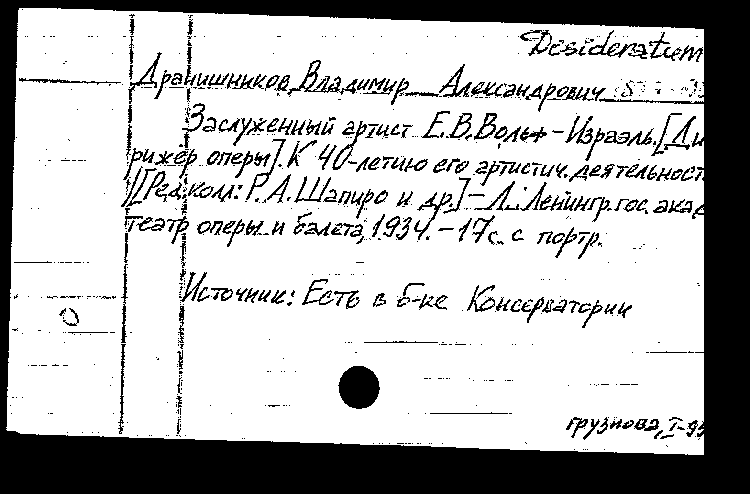 Desideratum
Дранишников, Владимир Александрович
Заслуженный артист Е.В.Вольф-Израэль. [Ди
рижёр оперы]. К 40-летию его артистич. деятельност
[[Ред.колл: Р.А.Шапиро и др.] - Л.: Ленингр. гос. акад
театр оперы и балета, 1934. - 17с. с портр.
Источник: Есть в б-ке Консерватории
грузнова, I-95